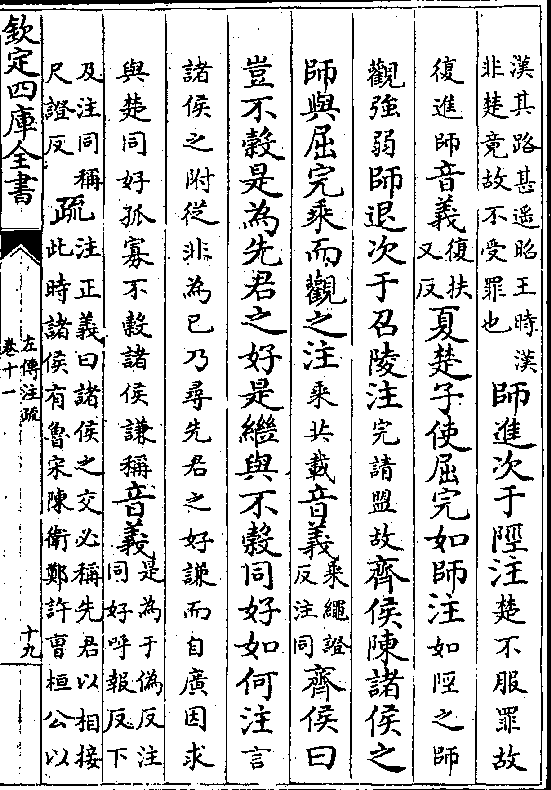 漢其路甚遥昭王時漢
非楚竟故不受罪也
師進次于陘注楚不服罪故
復進師音義復扶
又反
夏楚子使屈完如師注如陘之師
觀強弱師退次于召陵注完請盟故齊侯陳諸侯之
師與屈完乘而觀之注乘共載音義乘繩證
反注同
齊侯曰
豈不穀是為先君之好是繼與不穀同好如何注言
諸侯之附從非為已乃尋先君之好謙而自廣因求
與楚同好孤寡不穀諸侯謙稱音義是為于偽反注
同好呼報反下
及注同稱
尺證反
疏注正義曰諸侯之交必稱先君以相接
此時諸侯有魯宋陳衛鄭許曹桓公以
欽定四庫全書
左傳注疏
卷十一
十九